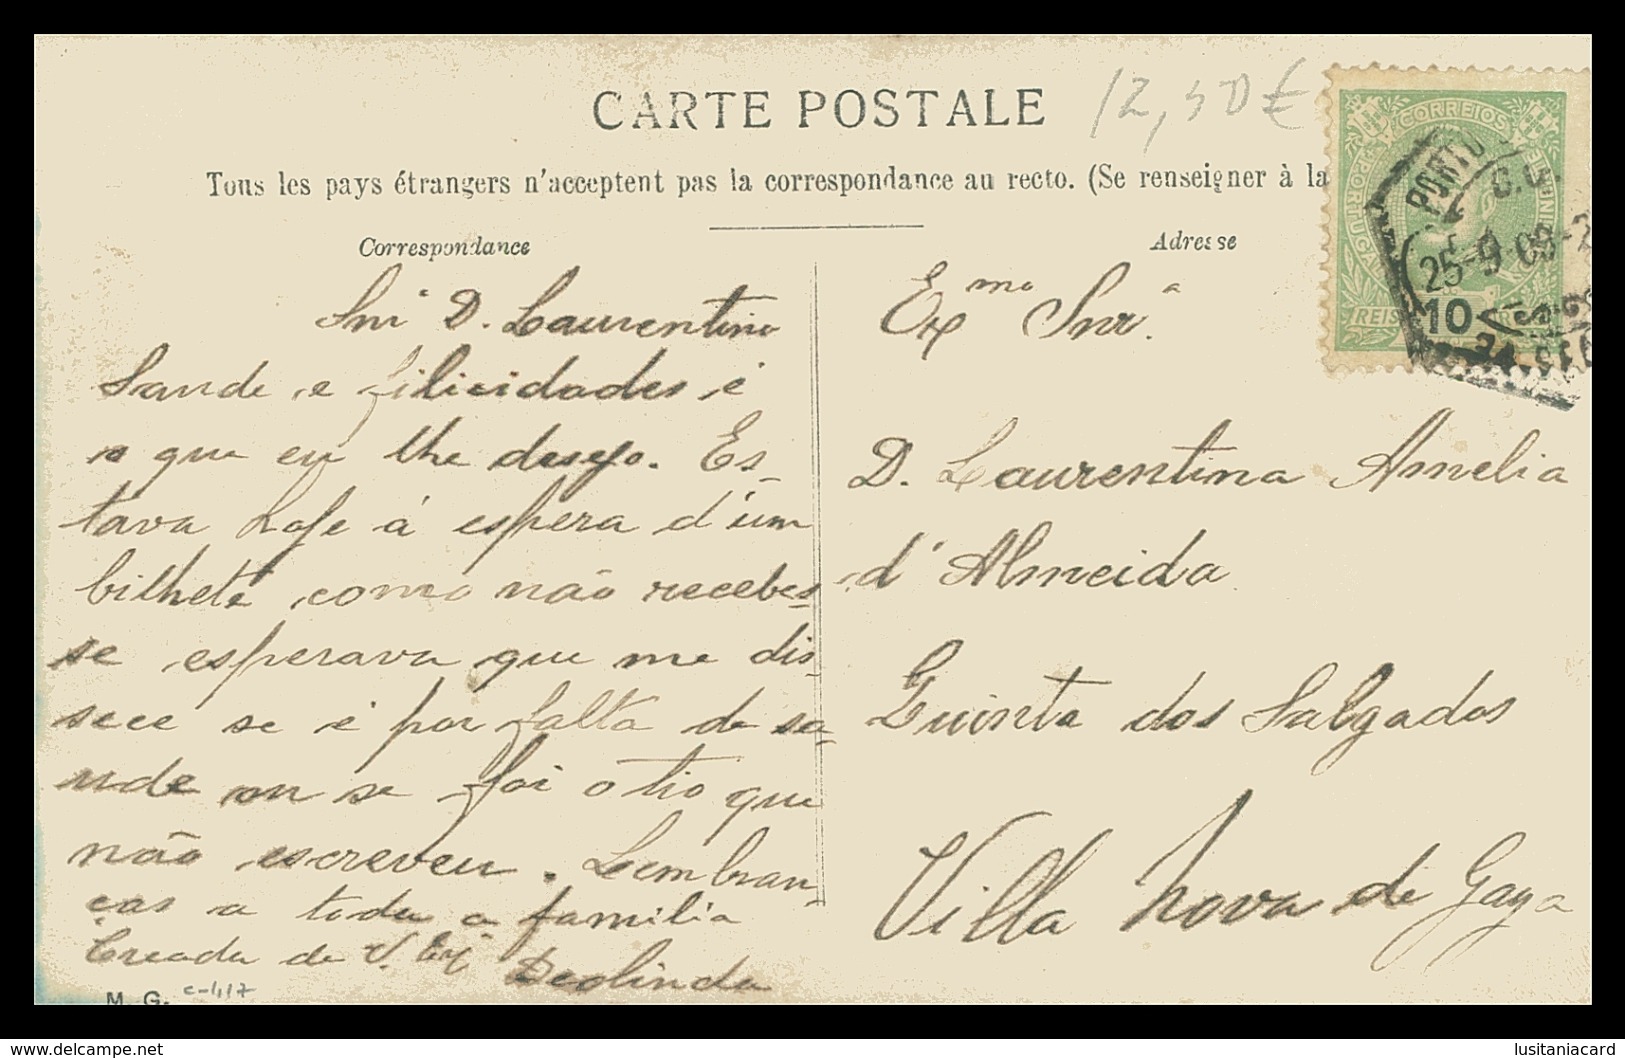 CARTE POSTALE
12,50€
Tous les pays étrangers n'acceptent pas la correspondance au recto. (Se renseigner à la
Correspondance
Snr.ª D. Laurentina
Saude e filicidades é
o que eu lhe desejo. Es-
tava hoje á espera d'um
bilhete, como não recebes-
se esperava que me dis-
sece se é por falta de sa-
ude ou se foi o tio que
não escreveu. Lembran-
ças a toda a familia
Creada de V. Exª
Deolinda
M. G. C-417
Adresse
Exma Snrª.
D. Laurentina Amelia
d'Almeida
Quinta dos Salgados
Villa Nova de Gaya
CORREIOS
PORTUGAL
PORTO
25-9 09
10
REIS
www.delcampe.net
lusitaniacard